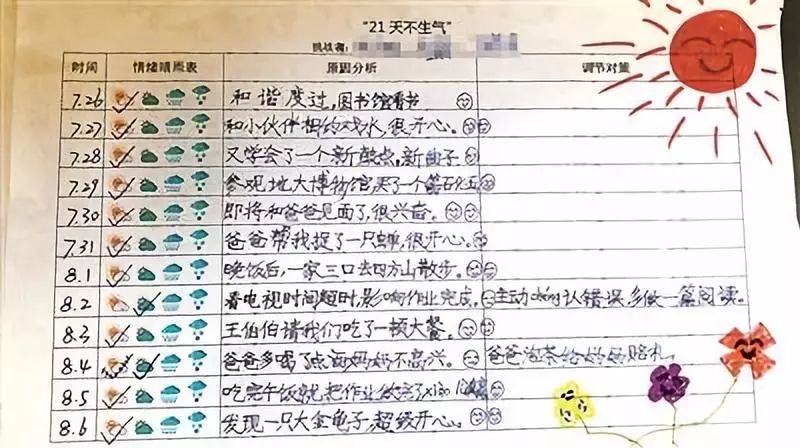 "21天不生气"
挑战者:
时间 情绪晴雨表 原因分析 调节对策
7.26 和谐度过,图书馆看书
7.27 和小伙伴相约戏水,很开心。
7.28 又学会了一个新鼓点,新曲子
7.29 参观地大博物馆买了一个
7.30 即将和爸爸见面了,很兴奋。
7.31 爸爸帮我捉了一只蝉,很开心。
8.1 晚饭后,一家三口去四方山散步。
8.2 看电视时间超时,影响作业完成。 主动 认错误,多做一篇阅读。
8.3 王伯伯请我们吃了一顿大餐。
8.4 爸爸多喝了点 妈妈不高兴。 爸爸泡茶给妈妈赔礼。
8.5 吃完午饭就把作业做完了
8.6 发现一只大金龟子,超级开心。